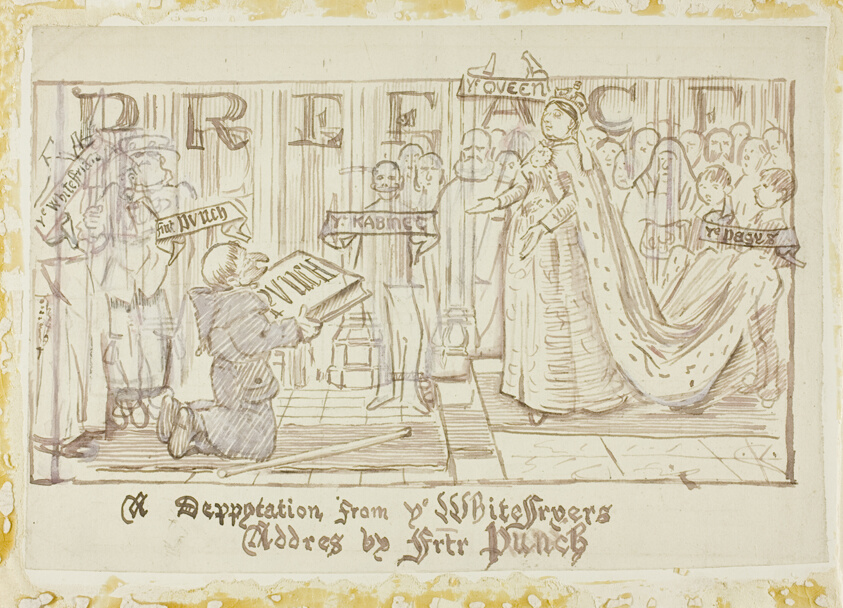 PREFACE
Yᵉ QVEEN
yᵉ White
Frat PVNCH
Yᵉ KABINET
Yᵉ PAGYS
PVNCH
A Deppytation, from yᵉ Whitefryers
Addres by Frtr Punch